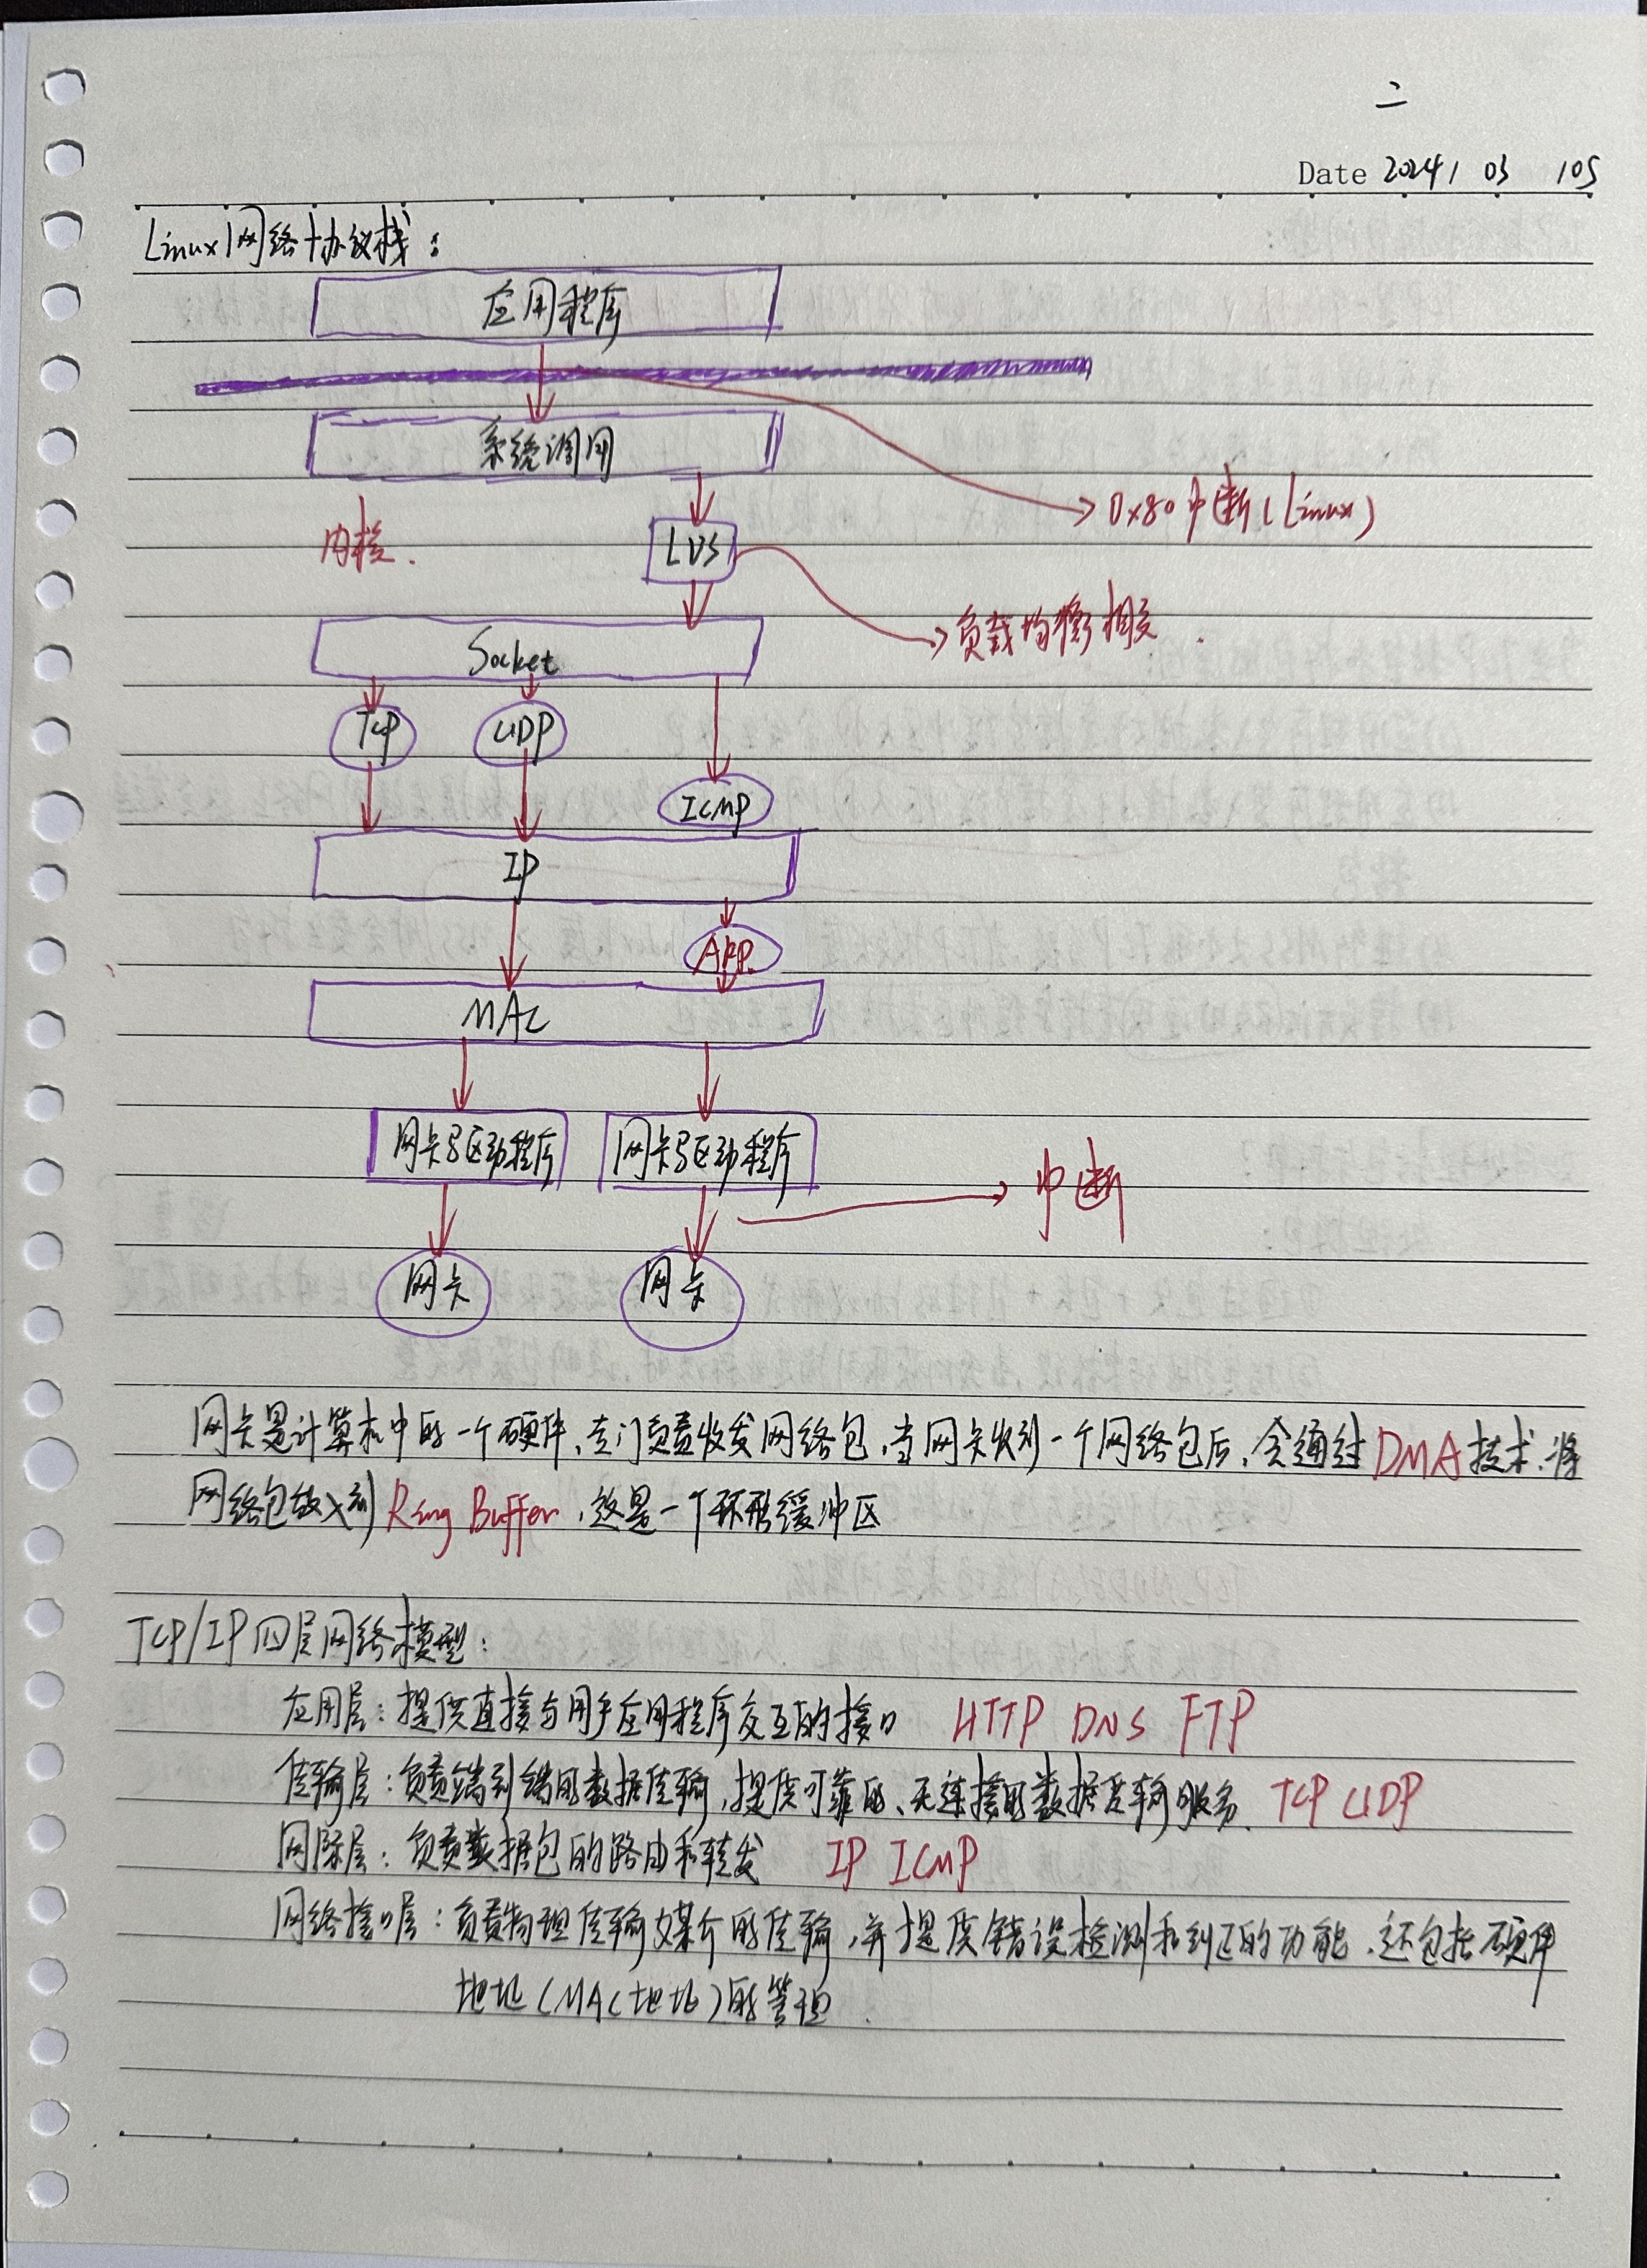 二
Date 2024/ 03 /05
Linux网络协议栈：
应用程序
系统调用
0x80中断(Linux)
内核.
LVS
负载均衡相关.
Socket
TCP UDP
ICMP
IP
ARP
MAC
网卡驱动程序 网卡驱动程序
中断
网卡 网卡
网卡是计算机中的一个硬件、专门负责收发网络包，当网卡收到一个网络包后，会通过DMA技术、将
网络包放入到Ring Buffer，这是一个环形缓冲区
TCP/IP四层网络模型：
应用层：提供直接与用户应用程序交互的接口 HTTP DNS FTP
传输层：负责端到端的数据传输，提供可靠的、无连接的数据传输服务. TCP UDP
网际层：负责数据包的路由和转发 IP ICMP
网络接口层：负责物理传输媒介的传输，并提供错误检测和纠正的功能、还包括硬件
地址(MAC地址)的管理.